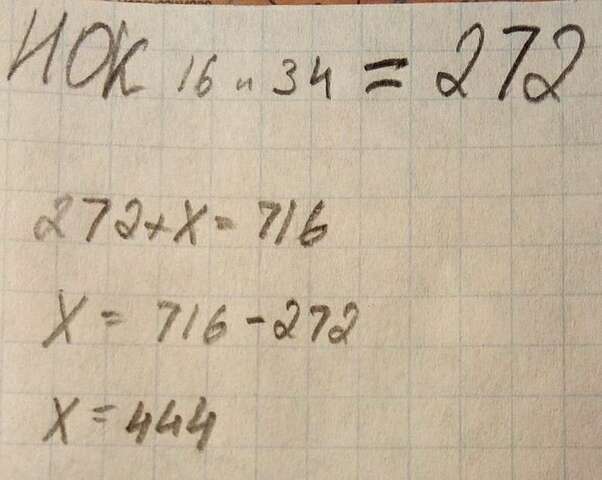 НОК 16 и 34 = 272
272+x=716
X = 716-272
X = 444